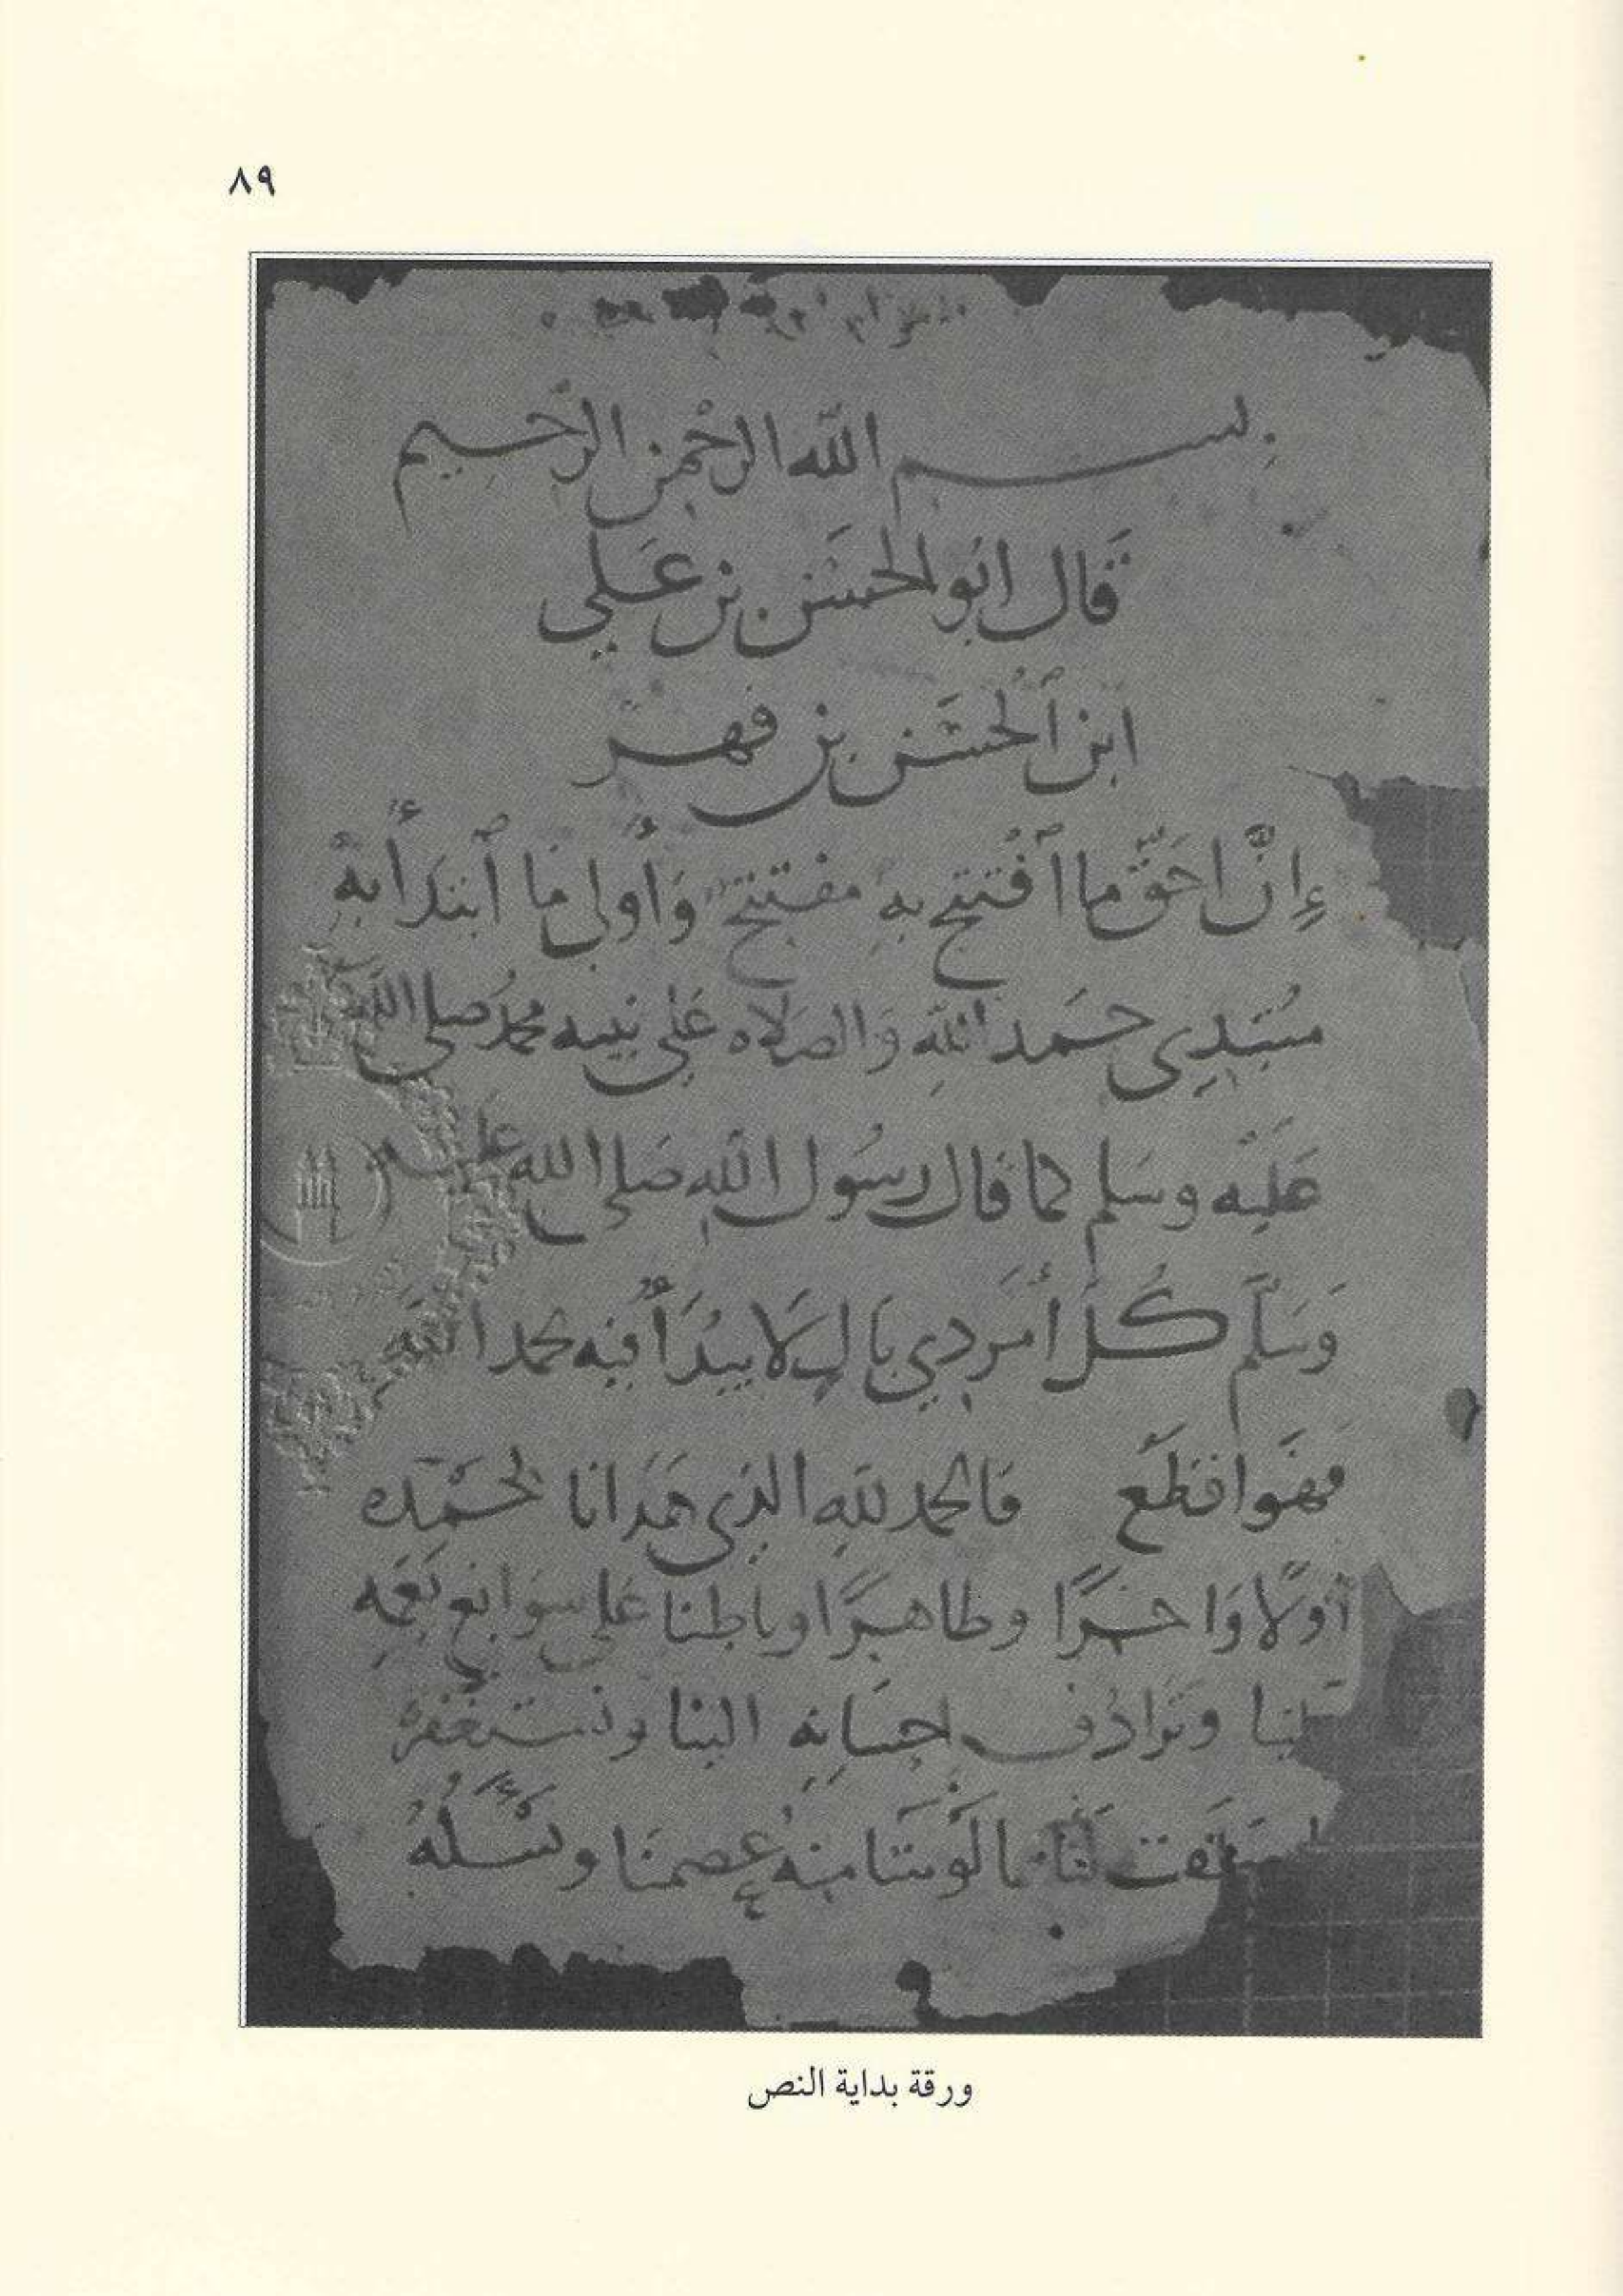 ٨٩
بسم الله الرحمن الرحيم
قال ابو الحسن بن علي
ابن ٱلحسن بن فهر
إنَّ احَقّ ما ٱفتتح بهِ مفتتح وَأولى ما ٱبتدَأ به
مبتدِي حَمد اللهِ وَالصلاه عَلى نبيه محمد صلى الله
عَليْه وسَلم كما قال رسُول اللهِ صَلى الله عليه
وَسَلَّم كُل أمر ذي بَالٍ لا يُبْدَأُ فيه بحمد الله
فهوَ اقطَع فالحمد للهِ الذي هَدَانا لحَمْده
أولًا وَاخرًا وظاهرًا وباطنا على سوَابغ نعَمِه
وتَرادُف احسَانِهِ الينا ونستغفرهُ
لنَا مَا لوْ شَا منهُ عصمنَا ونسَئَلُهُ
ورقة بداية النص